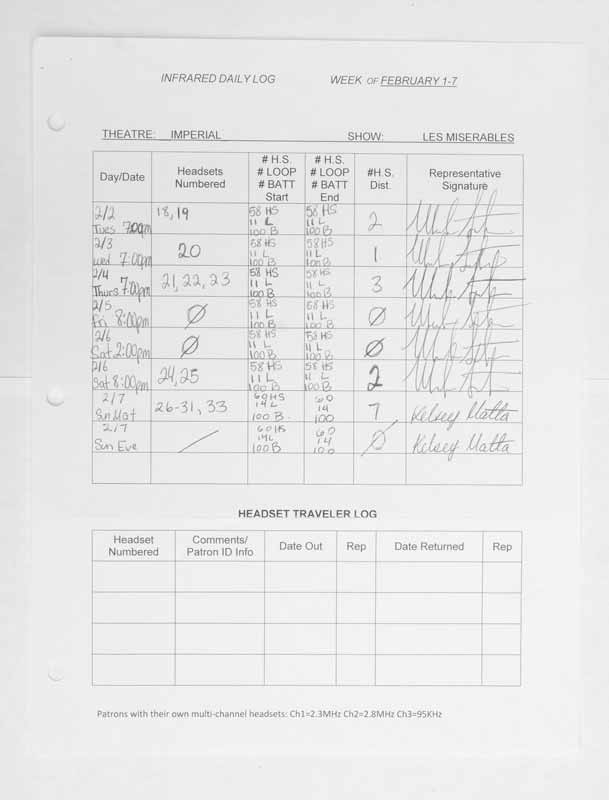 INFRARED DAILY LOG WEEK OF FEBRUARY 1-7
THEATRE: IMPERIAL SHOW: LES MISERABLES
Day/Date
Headsets
Numbered
# H.S.
# LOOP
# BATT
Start
# H.S.
# LOOP
# BATT
End
#H.S.
Dist.
Representative
Signature
2/2
Tues 7:00pm
18, 19
58 HS
11 L
100 B
58 HS
11 L
100 B
2
2/3
Wed 7:00pm
20
58 HS
11 L
100 B
58 HS
11 L
100 B
1
2/4
Thurs 7:00pm
21, 22, 23
58 HS
11 L
100 B
58 HS
11 L
100 B
3
2/5
Fri 8:00pm
Ø
58 HS
11 L
100 B
58 HS
11 L
100 B
Ø
2/6
Sat 2:00pm
Ø
58 HS
11 L
100 B
58 HS
11 L
100 B
Ø
2/6
Sat 8:00pm
24, 25
58 HS
11 L
100 B
58 HS
11 L
100 B
2
2/7
Sun Mat
26-31, 33
60 HS
14 L
100 B
60
14
100
7
Kelsey Matta
2/7
Sun Eve
60 HS
14 L
100 B
60
14
100
Ø
Kelsey Matta
HEADSET TRAVELER LOG
Headset
Numbered
Comments/
Patron ID Info
Date Out
Rep
Date Returned
Rep
Patrons with their own multi-channel headsets: Ch1=2.3MHz Ch2=2.8MHz Ch3=95KHz